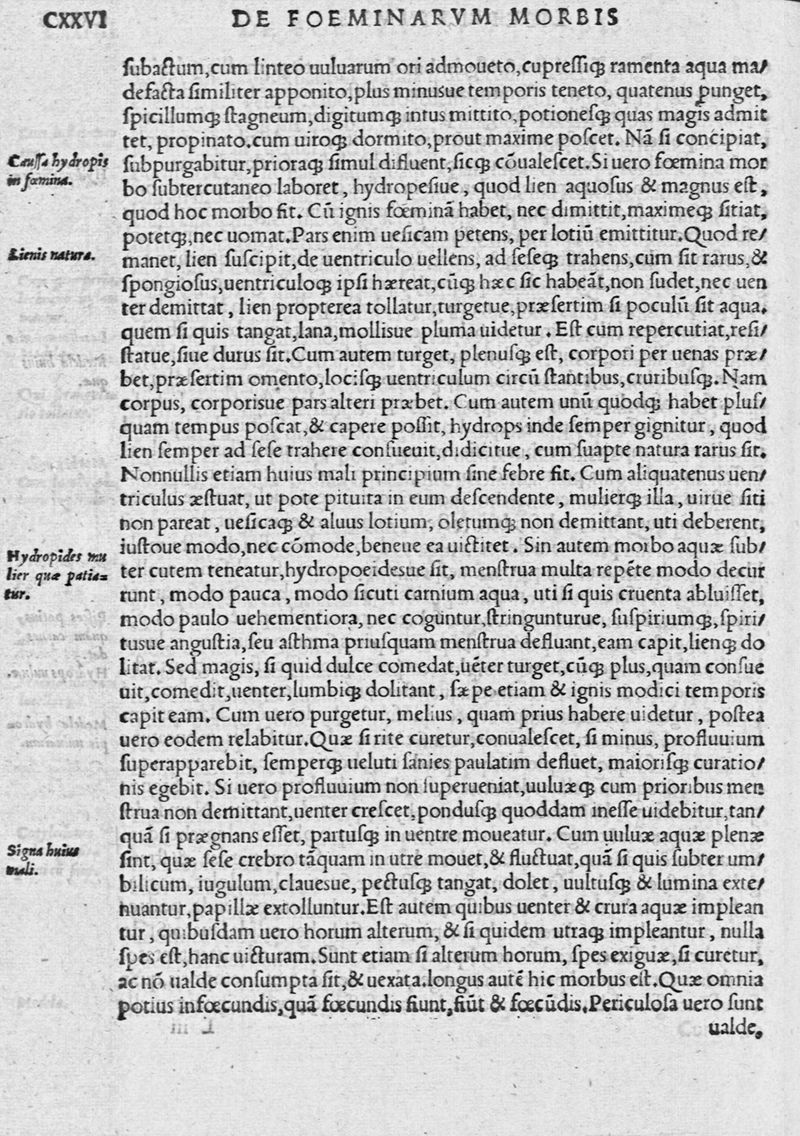 CXXVI DE FOEMINARVM MORBIS
ſubactum,cum linteo uuluarum ori admoueto,cupreſſiqꝫ ramenta aqua ma/
defacta ſimiliter apponito,plus minusue temporis teneto, quatenus punget,
ſpicillumqꝫ ſtagneum,digitumqꝫ intus mittito,potioneſqꝫ quas magis admit
tet, propinato.cum uiroqꝫ dormito,prout maxime poſcet. Nā ſi concipiat,
Cauſſa hydropis
in fœmina.
ſubpurgabitur,prioraqꝫ ſimul difluent,ſicqꝫ cōualeſcet.Si uero fœmina mor
bo ſubtercutaneo laboret, hydropeſiue, quod lien aquoſus & magnus eſt,
quod hoc morbo fit. Cū ignis fœminā habet, nec dimittit,maximeqꝫ ſitiat,
potetqꝫ,nec uomat.Pars enim ueſicam petens, per lotiū emittitur.Quod re/
Lienis natura.
manet, lien ſuſcipit,de uentriculo uellens, ad ſeſeqꝫ trahens,cum ſit rarus,&
ſpongioſus,uentriculoqꝫ ipſi hæreat,cūqꝫ hæc ſic habeāt,non ſudet,nec uen
ter demittat, lien propterea tollatur,turgetue,præſertim ſi poculū ſit aqua.
quem ſi quis tangat,lana,mollisue pluma uidetur. Eſt cum repercutiat,reſi/
ſtatue,ſiue durus ſit.Cum autem turget, plenuſqꝫ eſt, corpori per uenas præ/
bet,præſertim omento,lociſqꝫ uentriculum circū ſtantibus,cruribuſqꝫ.Nam
corpus, corporisue pars alteri præbet. Cum autem unū quodqꝫ habet pluſ/
quam tempus poſcat,& capere poſſit, hydrops inde ſemper gignitur, quod
lien ſemper ad ſeſe trahere conſueuit,didicitue, cum ſuapte natura rarus ſit.
Nonnullis etiam huius mali principium ſine febre fit. Cum aliquatenus uen/
triculus æſtuat, ut pote pituita in eum deſcendente, mulierqꝫ illa, uirue ſiti
non pareat, ueſicaqꝫ & aluus lotium, oletumqꝫ non demittant, uti deberent,
iuſtoue modo,nec cōmode,beneue ea uictitet. Sin autem morbo aquæ ſub/
Hydropides mu
lier quæ patia=
tur.
ter cutem teneatur,hydropoeidesue ſit, menſtrua multa repēte modo decur
runt, modo pauca, modo ſicuti carnium aqua, uti ſi quis cruenta abluiſſet,
modo paulo uehementiora, nec coguntur,ſtringunturue, ſuſpiriumqꝫ,ſpiri/
tusue anguſtia,ſeu aſthma priuſquam menſtrua defluant,eam capit,lienqꝫ do
litat. Sed magis, ſi quid dulce comedat,uēter turget,cūqꝫ plus,quam conſue
uit,comedit,uenter,lumbiqꝫ dolitant, ſæpe etiam & ignis modici temporis
capit eam. Cum uero purgetur, melius, quam prius habere uidetur, poſtea
uero eodem relabitur.Quæ ſi rite curetur,conualeſcet, ſi minus, profluuium
ſuperapparebit, ſemperqꝫ ueluti ſanies paulatim defluet, maioriſqꝫ curatio/
nis egebit. Si uero profluuium non ſuperueniat,uuluæqꝫ cum prioribus men
ſtrua non demittant,uenter creſcet,ponduſqꝫ quoddam ineſſe uidebitur,tan/
quā ſi prægnans eſſet, partuſqꝫ in uentre moueatur. Cum uuluæ aquæ plenæ
Signa huius
mali.
ſint, quæ ſeſe crebro tāquam in utre mouet,& fluctuat,quā ſi quis ſubter um/
bilicum, iugulum,clauesue, pectuſqꝫ tangat, dolet, uultuſqꝫ & lumina exte/
nuantur,papillæ extolluntur.Eſt autem quibus uenter & crura aquæ implean
tur, quibuſdam uero horum alterum, & ſi quidem utraqꝫ impleantur, nulla
ſpes eſt,hanc uicturam.Sunt etiam ſi alterum horum, ſpes exiguæ,ſi curetur,
ac nō ualde conſumpta ſit,& uexata.longus autē hic morbus eſt.Quæ omnia
potius infœcundis,quā fœcundis fiunt,fiūt & fœcūdis.Periculoſa uero ſunt
ualde,